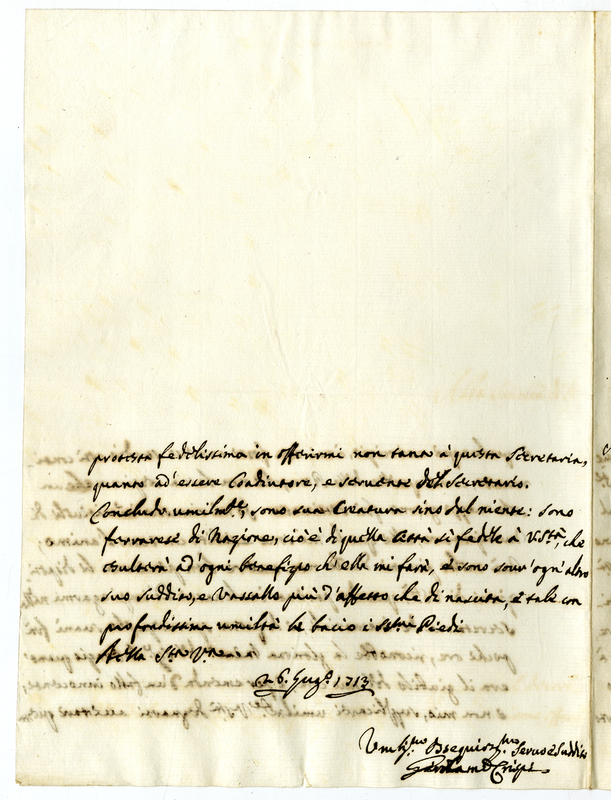 protesta fedelissima in offerirmi non tanto à questa Secretaria,
quanto ad' essere Coadiutore, e servente del Secretario.
Concludo umilm.te, sono sua Creatura sino dal niente: sono
ferrarese di Nazione, cioè di quella Città sì fedele à V. S.tà, che
esulterà ad' ogni benefizio ch' ella mi farà, e sono sovr' ogn' altro
suo suddito, e Vassallo più d' affetto che di nascita, e tale con
profondissima umiltà le bacio i S.mi Piedi
Della S.tà V.ra
6. Giug.o 1713
Umiliss.mo Osequiosiss.mo Servo e Suddito
Crispi